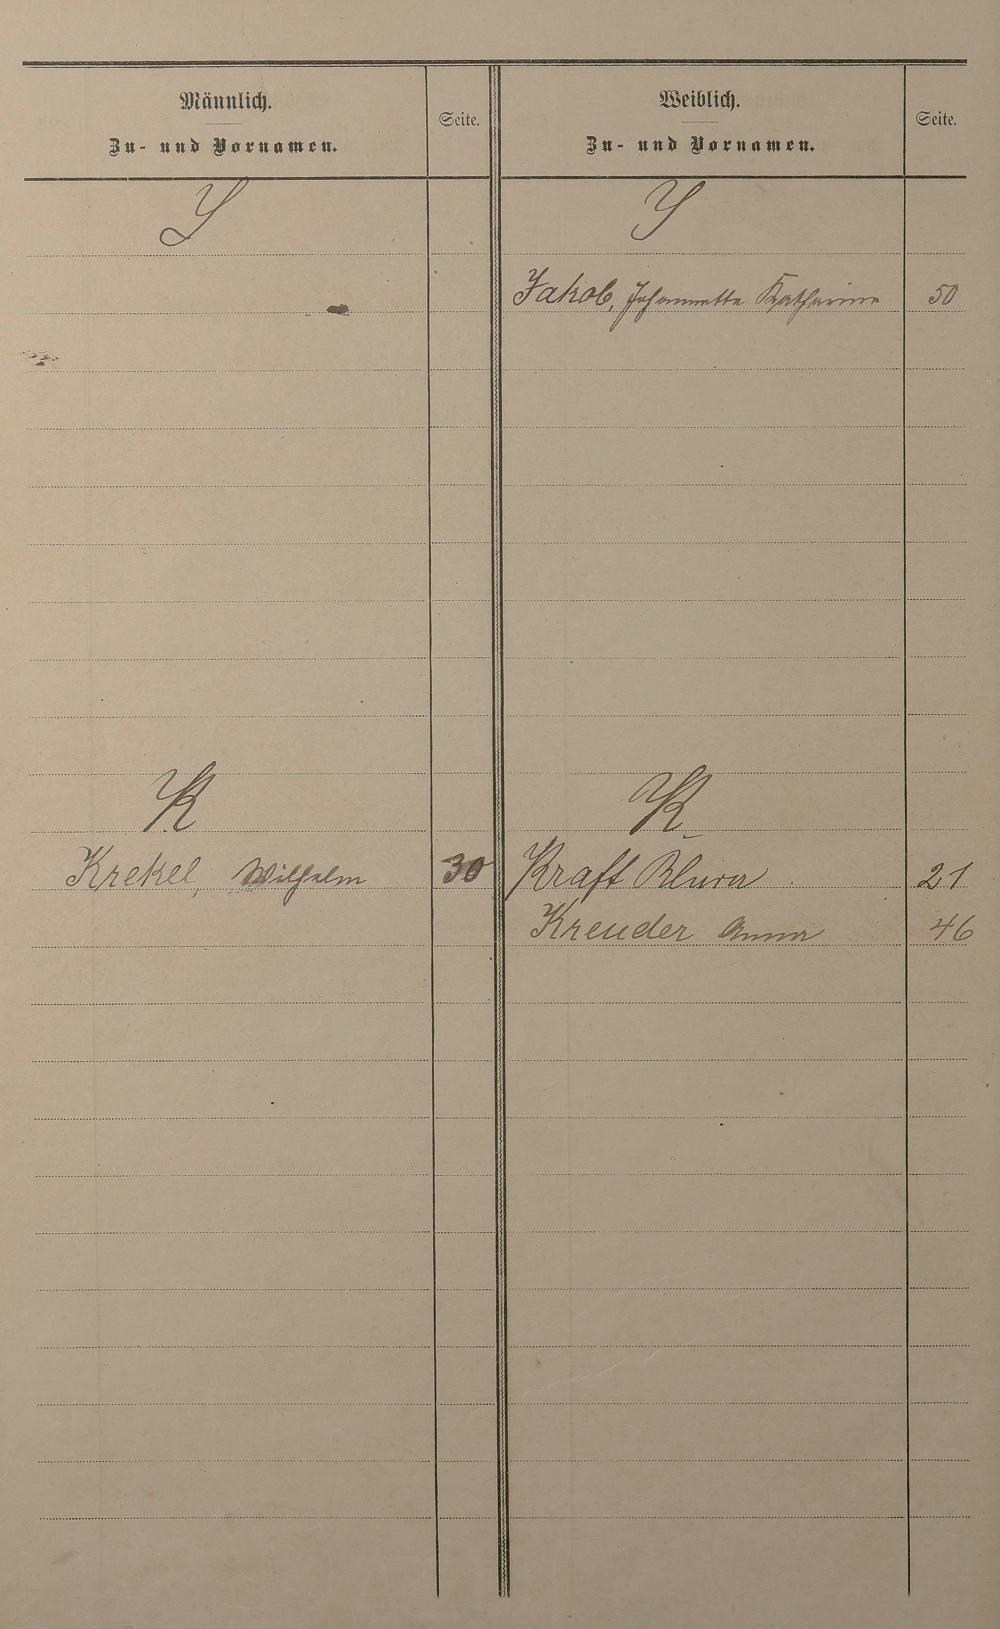 Männlich.
Zu- und Vornamen.
Seite.
Weiblich.
Zu- und Vornamen.
Seite.
J
J
Jakob, Johannetta Katharina 50
K
K
Krekel, Wilhelm 30
Kraft 21
Kreuder Anna 46